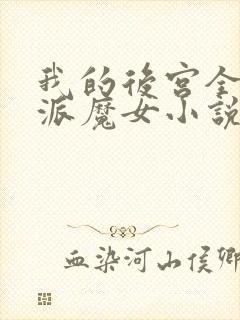 我的後宮全
派魔女小説
血染河山侯卿